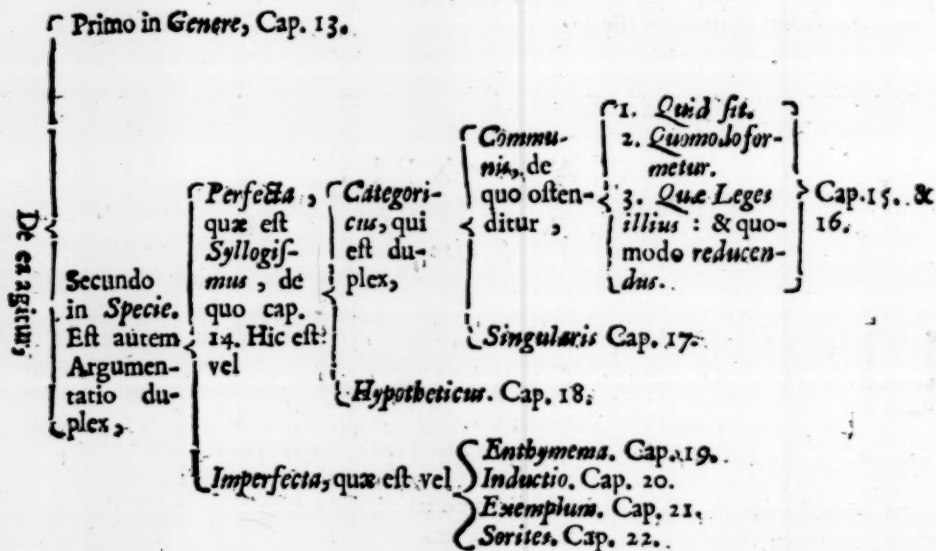 De ea agitur,
Primo in Genere, Cap. 13.
Secundo
in Specie.
Est autem
Argumen-
tatio du-
plex,
Perfecta,
quæ est
Syllogis-
mus, de
quo cap.
14. Hic est
vel
Categori-
cus, qui
est du-
plex,
Commu-
nis, de
quo osten-
ditur,
1. Quid sit.
2. Quomodo for-
metur.
3. Quæ Leges
illius : & quo-
modo reducen-
dus.
Cap. 15. &
16.
Singularis Cap. 17.
Hypotheticus. Cap. 18.
Imperfecta, quæ est vel
Enthymema. Cap. 19.
Inductio. Cap. 20.
Exemplum. Cap. 21.
Sorites. Cap. 22.